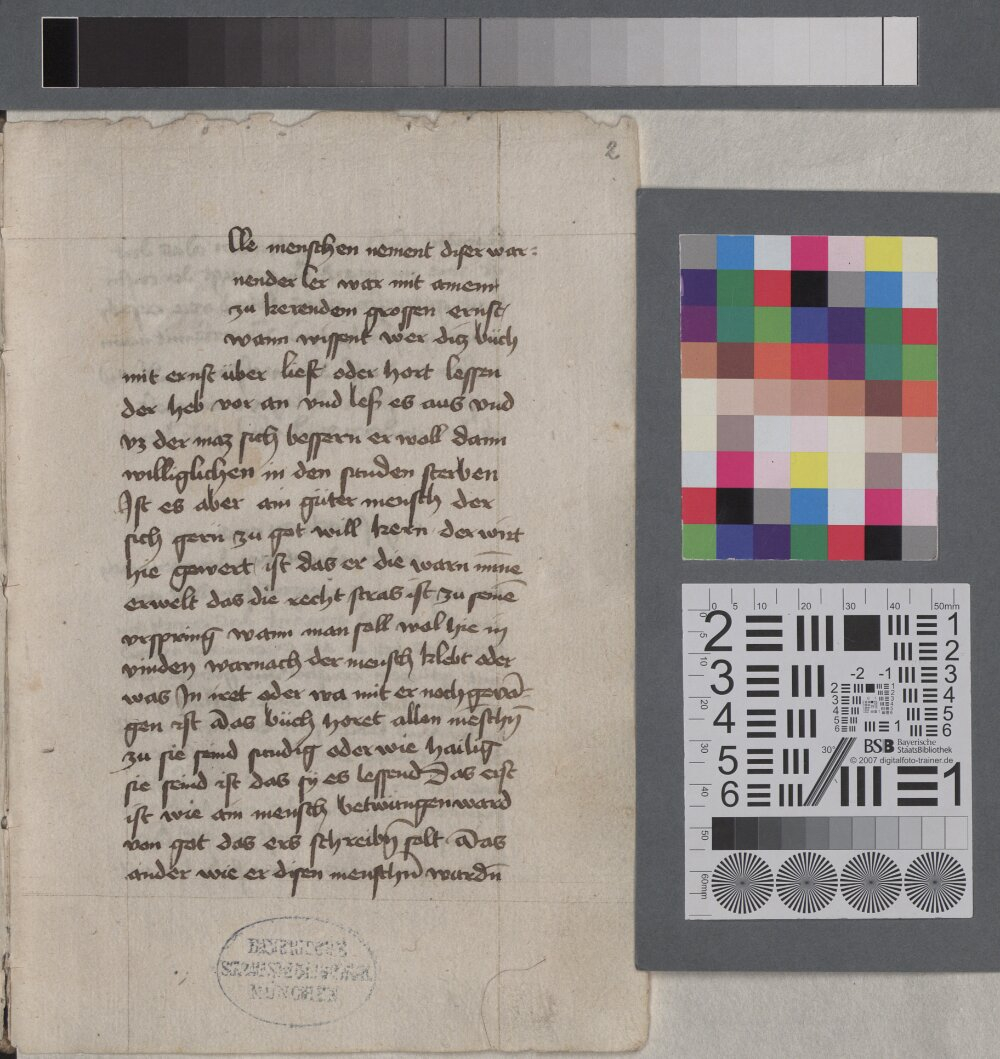 2
lle menschen nement diser war-
nender ler war mit ainem
zu kerendem grossen ernst
wann wissent wer diz bůch
mit ernst über liest oder hört lessen
der heb vor an vnd leß es aus vnd
vz der maz sich bessern er woll dann
williglichen in den sünden sterben
Jst es aber ain gůter mensch der
sich gern zu got will kern der wirt
hie gewert ist das er die warn minne
erwelt das die recht stras ist zu seinē
vrspring wann man soll wol hie in
vinden warnach der mensch klebt oder
was Jn irret oder wa mit er noch gevā-
gen ist Das bůch höret allen meschn̄
zu sie seind sündig oder wie hailig
sie seind ist das sy es lessend Das erst
ist wie ain mensch betwungen ward
von got das ers schreibn̄ solt Das
ander wie er disen menschn̄ wardn̄
STAATSBIBLIOTHEK
MÜNCHEN
0 5 10 20 30 40 50mm
5 10 20 30 40 50 60mm
2 3 4 5 6
1 2 3 4 5 6
-2 -1
30°
1
BSB Bayerische
StaatsBibliothek
© 2007 digitalfoto-trainer.de
1